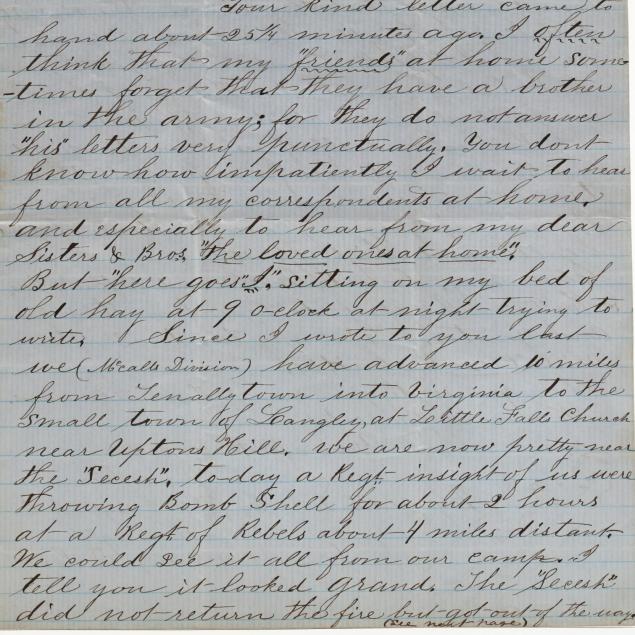 Your kind letter came to
hand about 25¼ minutes ago. I often
think that my "friends" at home some-
-times forget that they have a brother
in the army; for they do not answer
"his" letters very punctually. You dont
know how impatiently I wait to hear
from all my correspondents at home.
and especially to hear from my dear
Sisters & Bros. "the loved ones at home".
But "here goes" "I" sitting on my bed of
old hay at 9 o-clock at night trying to
write. Since I wrote to you last
we (McCalls Division) have advanced 10 miles
from Tenallytown into Virginia to the
small town of Langley, at Little Falls Church
near Uptons Hill. We are now pretty near
the "Secesh". to-day a Regt. insight of us were
throwing Bomb Shell for about 2 hours
at a Regt. of Rebels about 4 miles distant.
We could see it all from our camp. I
tell you it looked grand. The "Secesh"
did not return the fire but got out of the way
(see next page)